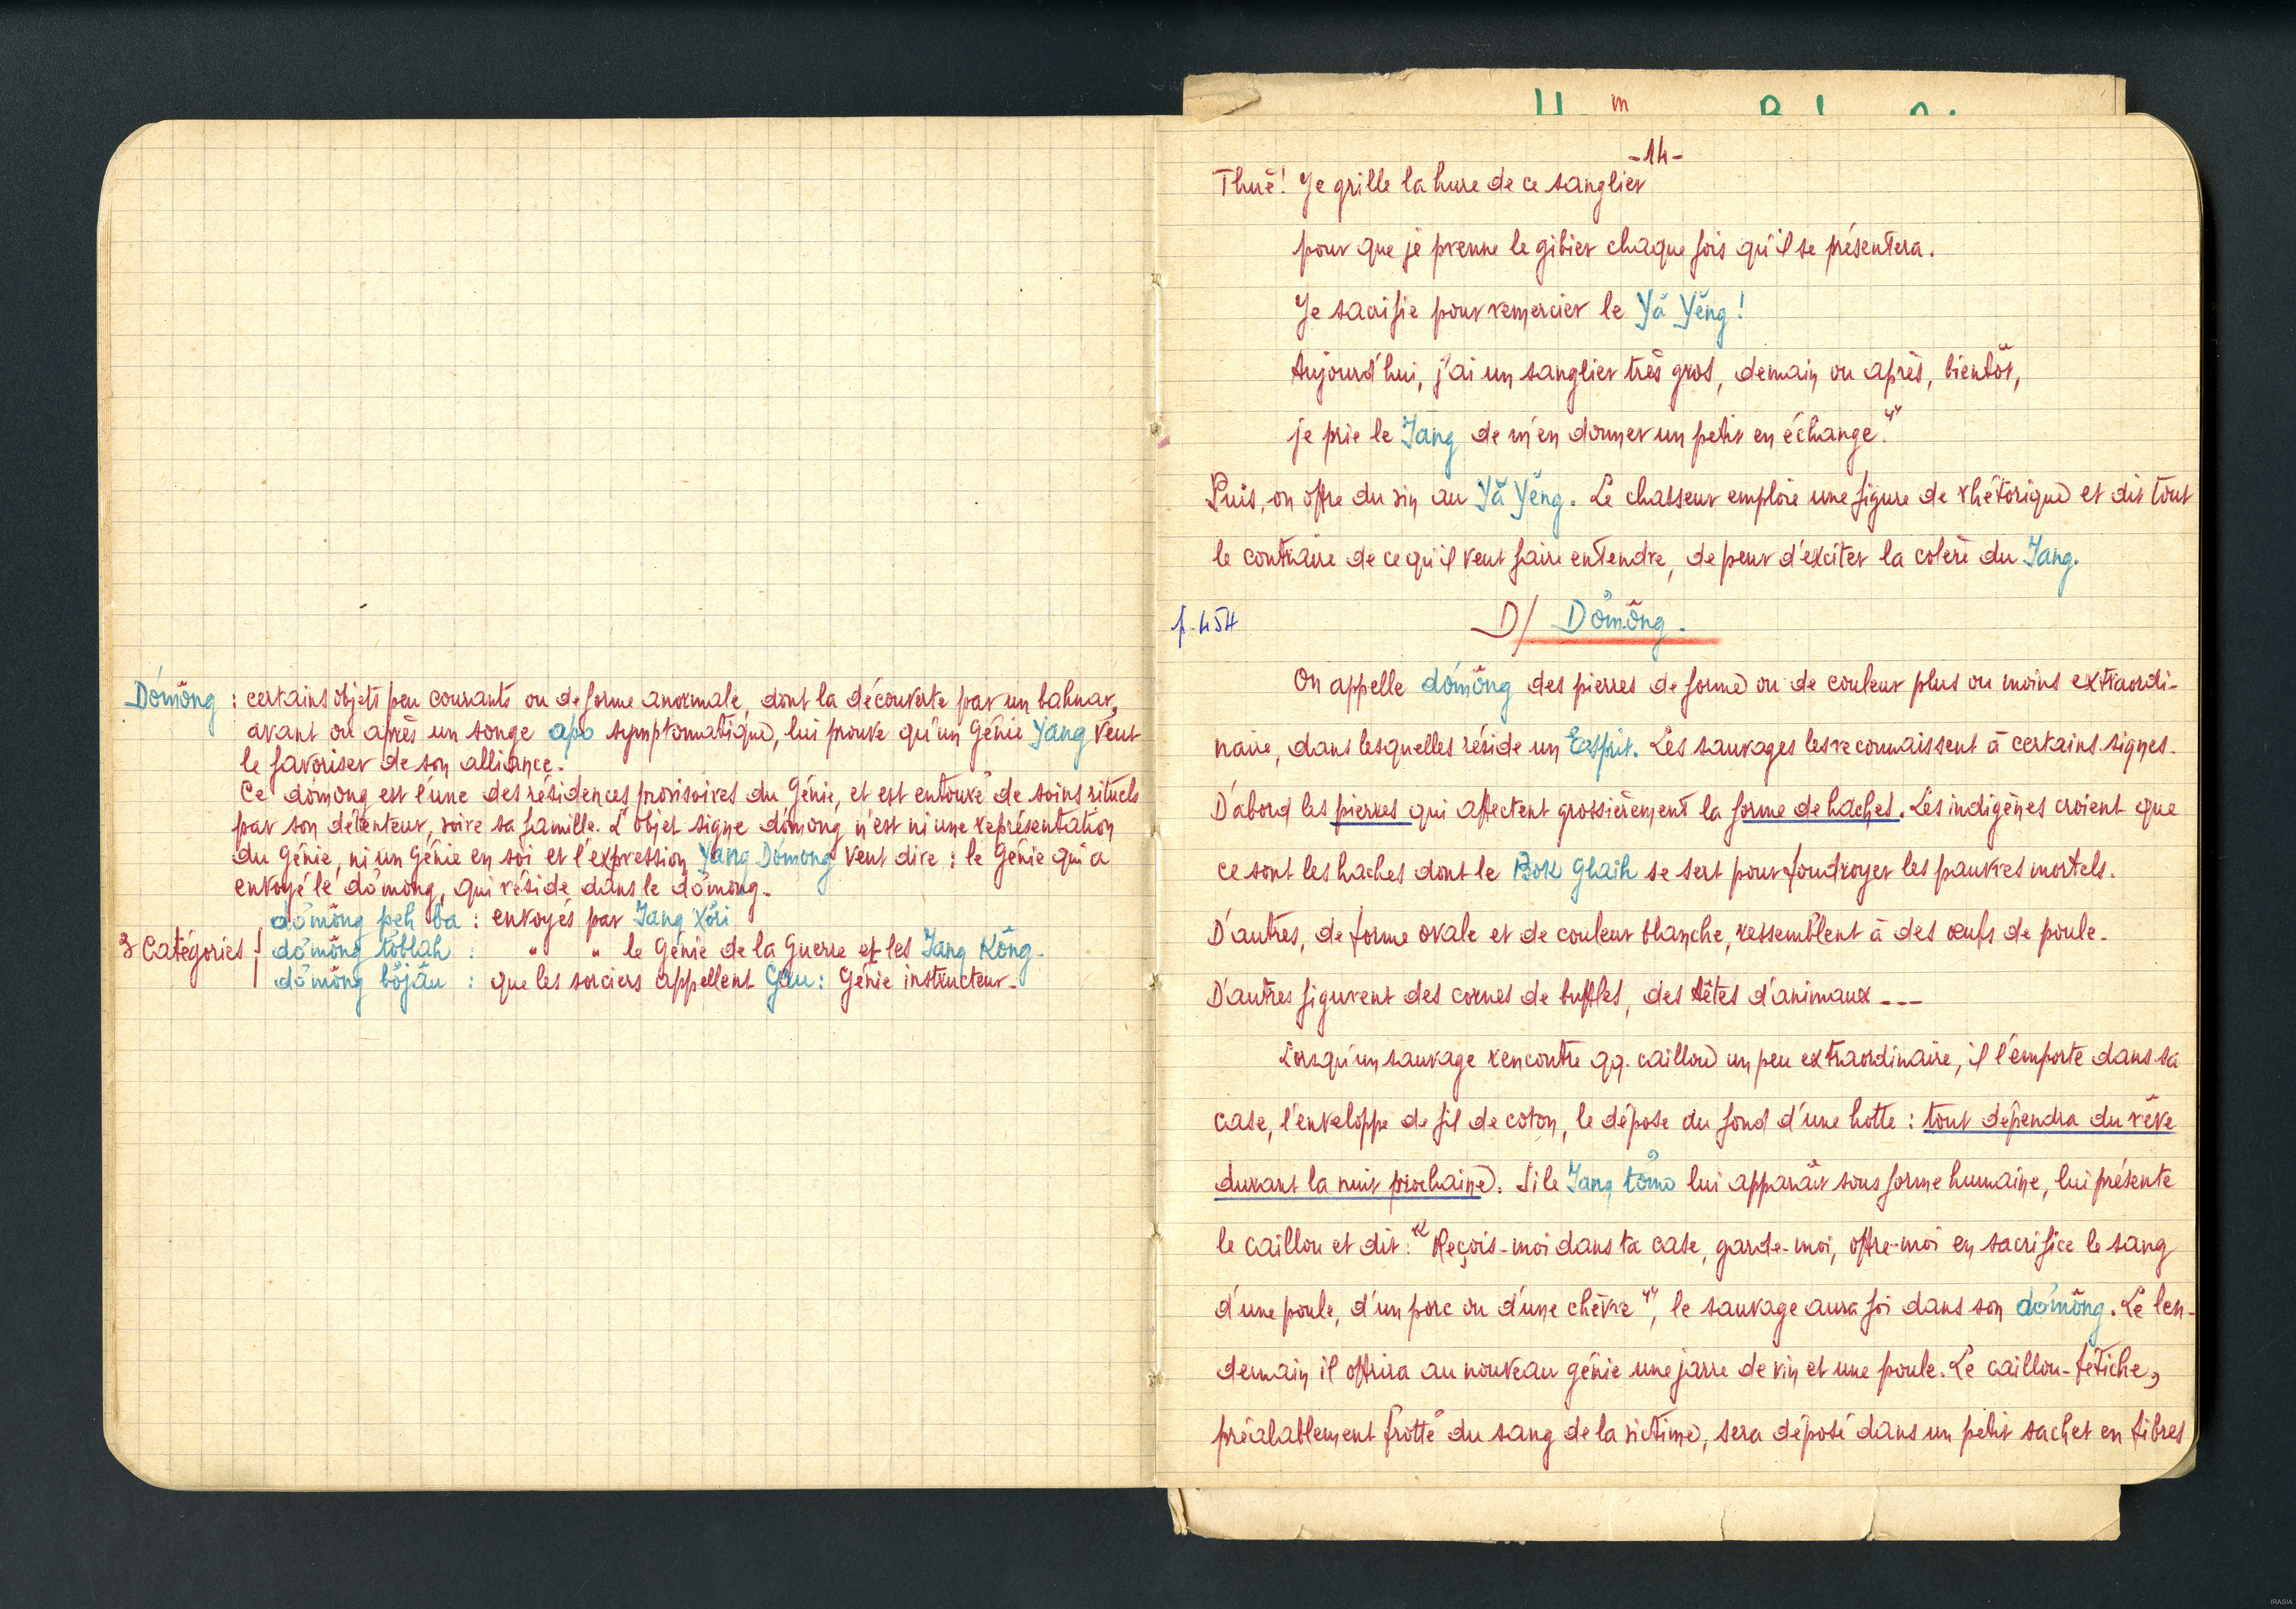 Dơmŏng : certains objets peu courants ou de forme anormale, dont la découverte par un bahnar,
avant ou après un songe apo symptomatique, lui prouve qu'un Génie Yang veut
le favoriser de son alliance.
Ce dơmong est l'une des résidences provisoires du Génie, et est entouré de soins rituels
par son détenteur, voire sa famille. L'objet signe dơmong n'est ni une représentation
du Génie, ni un Génie en soi et l'expression Yang Dơmong veut dire : le Génie qui a
envoyé le dơmong, qui réside dans le dơmong.
dơmŏng peh ba : envoyés par Iang Xơri
3 Catégories dơmŏng tơblah : " " le Génie de la Guerre et les Iang Kông.
dơmŏng bơjâu : que les sorciers appellent Gru : Génie instructeur.
-14-
Thuĕ! Je grille la hure de ce sanglier
pour que je prenne le gibier chaque fois qu'il se présentera.
Je sacrifie pour remercier le Yă Yĕng!
Aujourd'hui, j'ai un sanglier très gros, demain ou après, bientôt,
je prie le Iang de m'en donner un petit en échange."
Puis, on offre du vin au Yă Yĕng. Le chasseur emploie une figure de rhétorique et dit tout
le contraire de ce qu'il veut faire entendre, de peur d'exciter la colère du Iang.
p. 454
D/ Dơmŏng.
On appelle dơmŏng des pierres de forme ou de couleur plus ou moins extraordi-
naire, dans lesquelles réside un Esprit. Les sauvages les reconnaissent à certains signes.
D'abord les pierres qui affectent grossièrement la forme de haches. Les indigènes croient que
ce sont les haches dont le Bok Glaih se sert pour foudroyer les pauvres mortels.
D'autres, de forme ovale et de couleur blanche, ressemblent à des œufs de poule.
D'autres figurent des cornes de buffles, des têtes d'animaux ---
Lorsqu'un sauvage rencontre qq. caillou un peu extraordinaire, il l'emporte dans sa
case, l'enveloppe de fil de coton, le dépose au fond d'une hotte : tout dépendra du rêve
durant la nuit prochaine. Si le Iang tơmo lui apparaît sous forme humaine, lui présente
le caillou et dit : "Reçois-moi dans ta case, garde-moi, offre-moi en sacrifice le sang
d'une poule, d'un porc ou d'une chèvre", le sauvage aura foi dans son dơmŏng. Le len-
demain il offrira au nouveau génie une jarre de vin et une poule. Le caillou-fétiche,
préalablement frotté du sang de la victime, sera déposé dans un petit sachet en fibres